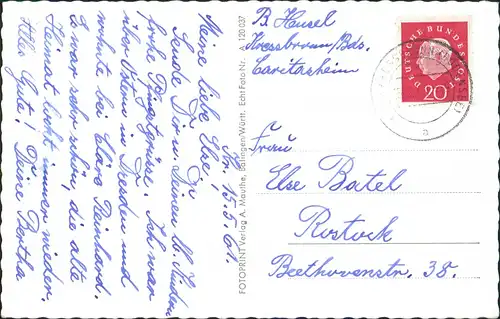 Kr. 15.5.61.
Meine liebe Else,
Sende Dir u. Deinen lb. Kindern
frohe Pfingstgrüsse. Ich war
über Ostern in Dresden und
wohnte bei Clara Reinhard.
Es war sehr schön, die alte
Heimat lockt immer wieder.
Alles Gute! Deine Bertha
FOTOPRINT Verlag A. Mauthe, Balingen/Württ. Echt Foto Nr. 120 037
B. Heusel
Kressbronn/Bds.
Caritasheim
DEUTSCHE BUNDESPOST
20
a
Frau
Else Batel
Rostock
Beethovenstr. 38.